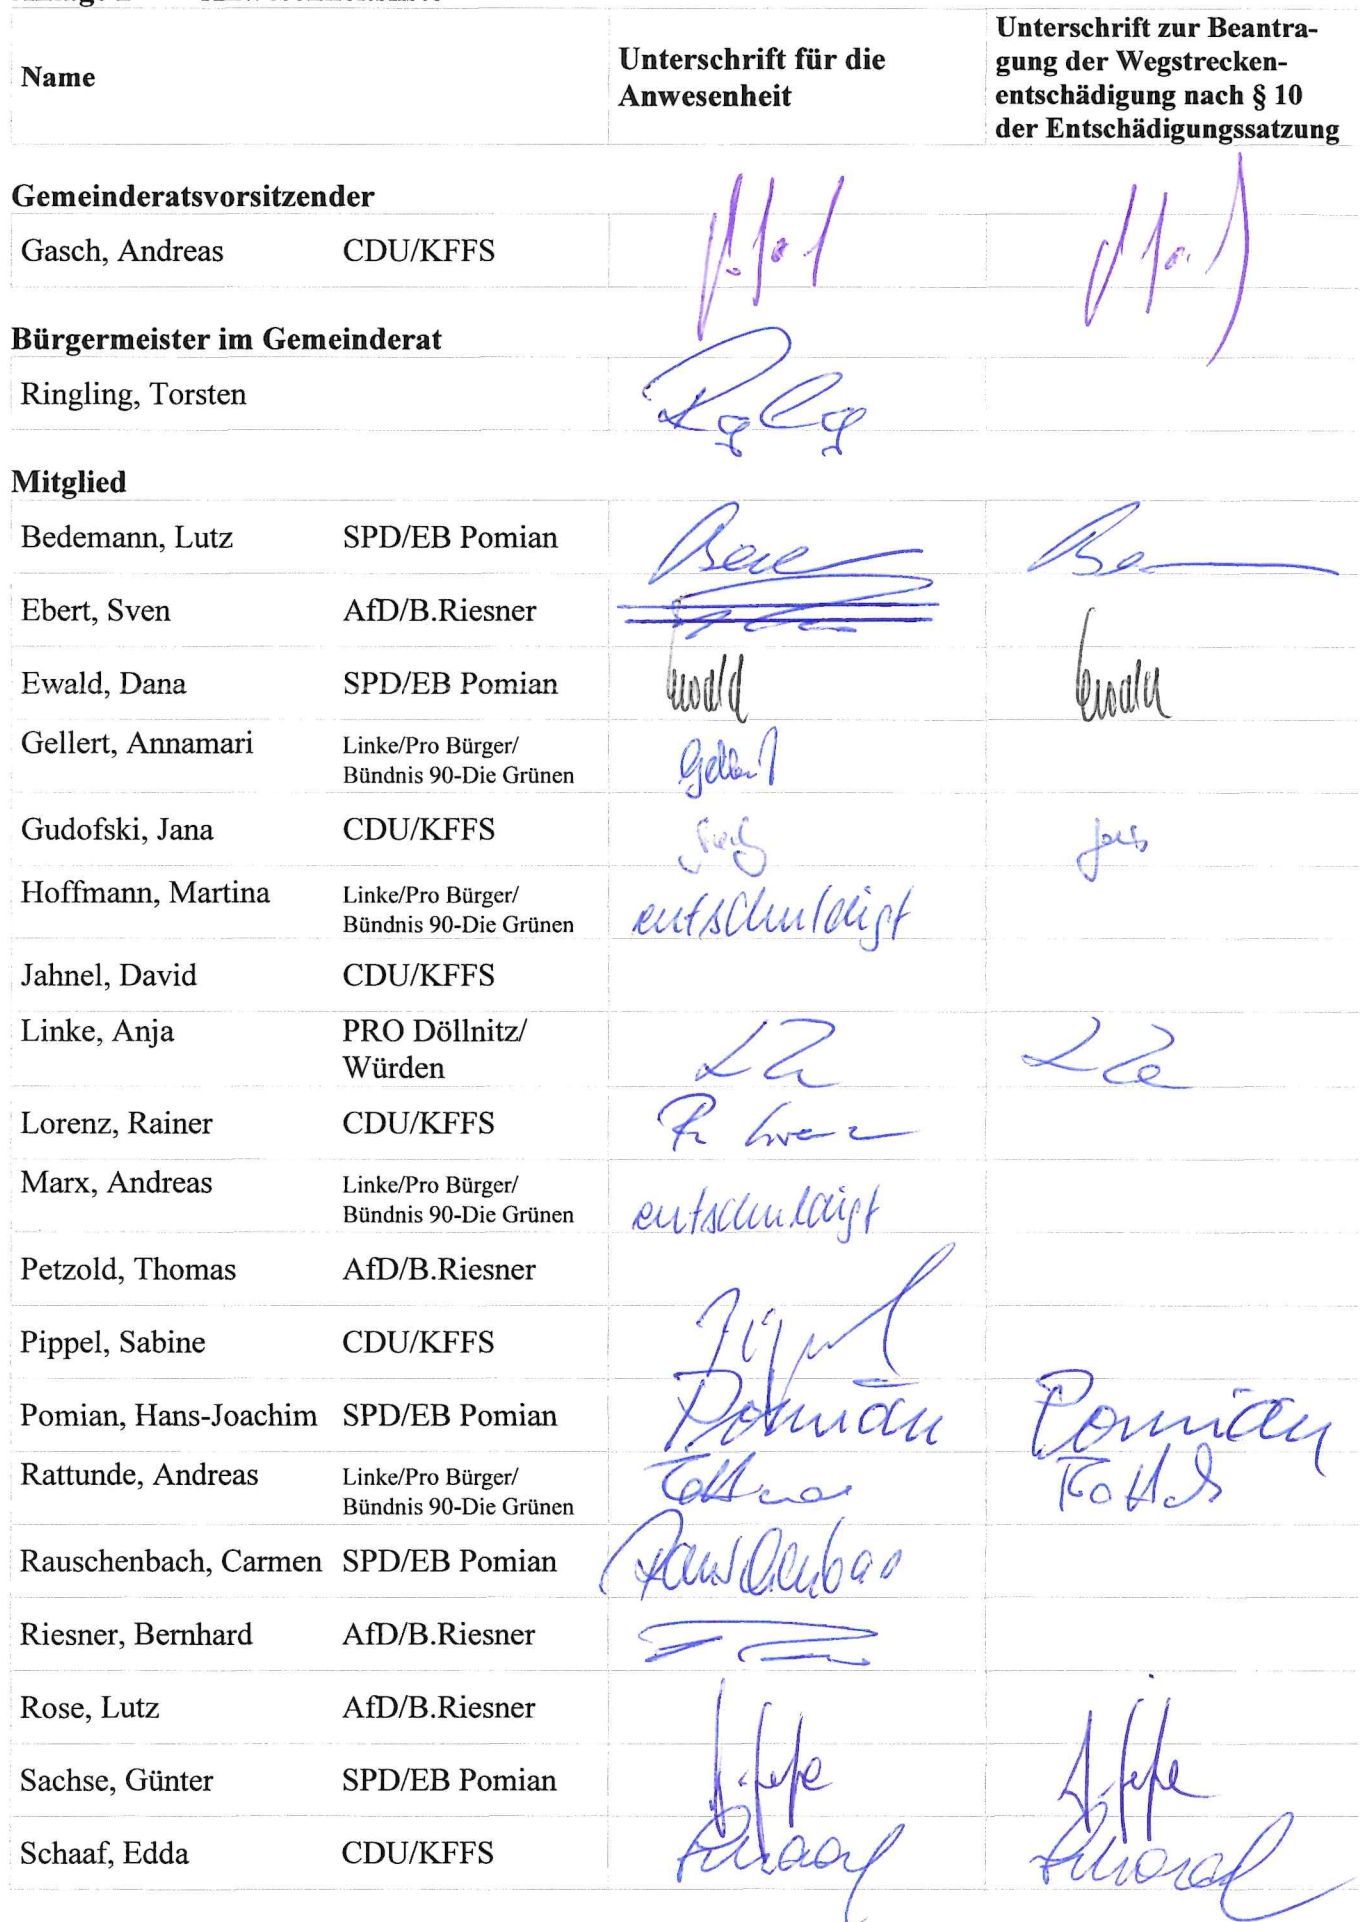 Name
Unterschrift für die
Anwesenheit
Unterschrift zur Beantra-
gung der Wegstrecken-
entschädigung nach § 10
der Entschädigungssatzung
Gemeinderatsvorsitzender
Gasch, Andreas CDU/KFFS
Bürgermeister im Gemeinderat
Ringling, Torsten
Mitglied
Bedemann, Lutz SPD/EB Pomian
Ebert, Sven AfD/B.Riesner
Ewald, Dana SPD/EB Pomian Ewald Ewald
Gellert, Annamari Linke/Pro Bürger/
Bündnis 90-Die Grünen Gellert
Gudofski, Jana CDU/KFFS
Hoffmann, Martina Linke/Pro Bürger/
Bündnis 90-Die Grünen entschuldigt
Jahnel, David CDU/KFFS
Linke, Anja PRO Döllnitz/
Würden
Lorenz, Rainer CDU/KFFS R. Lorenz
Marx, Andreas Linke/Pro Bürger/
Bündnis 90-Die Grünen entschuldigt
Petzold, Thomas AfD/B.Riesner
Pippel, Sabine CDU/KFFS
Pomian, Hans-Joachim SPD/EB Pomian Pomian Pomian
Rattunde, Andreas Linke/Pro Bürger/
Bündnis 90-Die Grünen
Rauschenbach, Carmen SPD/EB Pomian Rauschenbach
Riesner, Bernhard AfD/B.Riesner
Rose, Lutz AfD/B.Riesner
Sachse, Günter SPD/EB Pomian
Schaaf, Edda CDU/KFFS Schaaf Schaaf